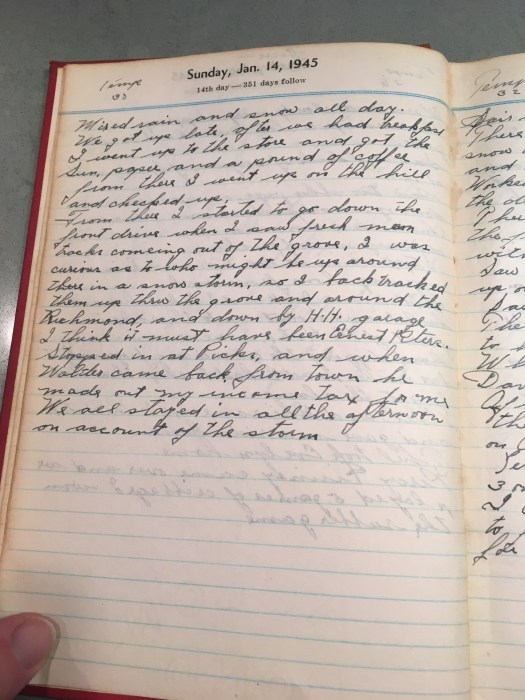 Temp
33
Sunday, Jan. 14, 1945
14th day—351 days follow
Mixed rain and snow all day.
We got up late, after we had breakfast
I went up to the store and got the
Sun, paper and a pound of coffee
from there I went up on the hill
and checked up,
From there I started to go down the
front drive when I saw fresh man
tracks comeing out of the grove, I was
curious as to who might be up around
there in a snow storm, so I back tracked
them up thru the grove and around the
Richmond, and down by H.H. garage
I think it must have been Ernest Peters.
Stopped in at Ricks, and when
Walter came back from town he
made out my income tax for me
We all stayed in all the afternoon
on account of the storm
Temp
32
Fair
There
snow
and
Worke
the
the
with
Saw
up
The
to
W
Da
th
on
3
to